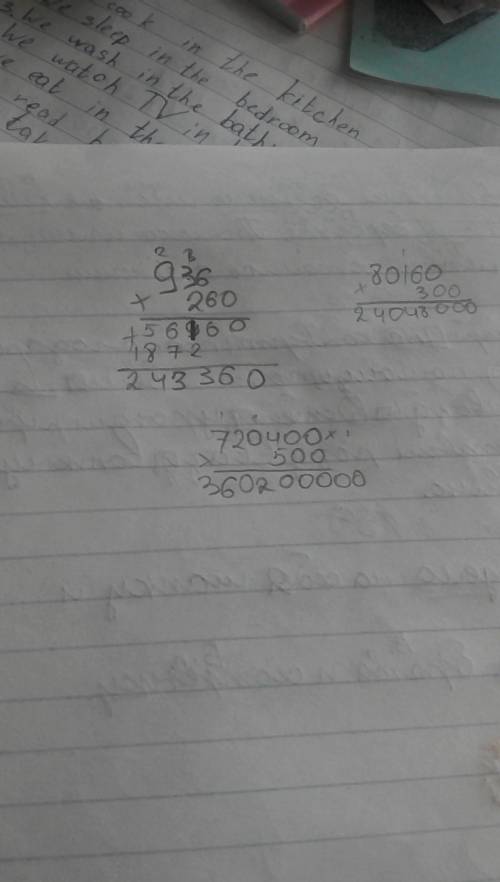 cook in the kitchen
we sleep in the bedroom
3. we wash in the bath
we watch TV in
eat in the
read
936
× 260
+ 56160
1872
243360
80160
× 300
24048000
720400
× 500
360200000